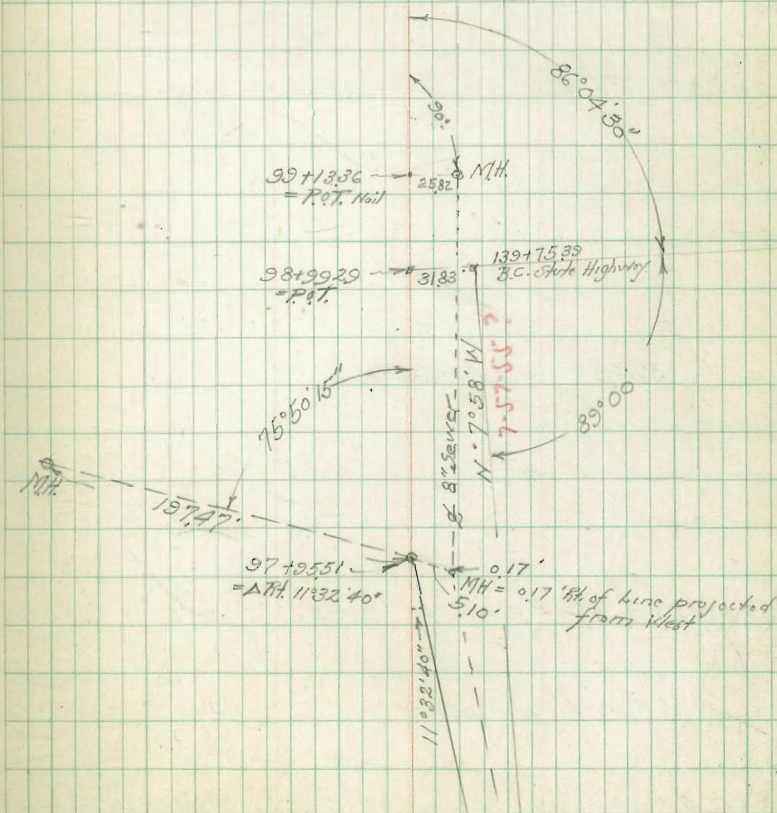 86°04'30"
90°
99+13.36
= P.O.T. Nail
25.82
M.H.
98+99.29
= P.O.T.
31.83
139+75.39
B.C. State Highway
75°50'15"
8" Sewer
N - 7°58' W
7-57-55 ?
89°00'
M.H.
197.47'
97+95.51
= Δ Rt. 11°32'40"
0.17'
MH = 0.17' Rt. of Line projected
from West
5.10'
11°32'40"